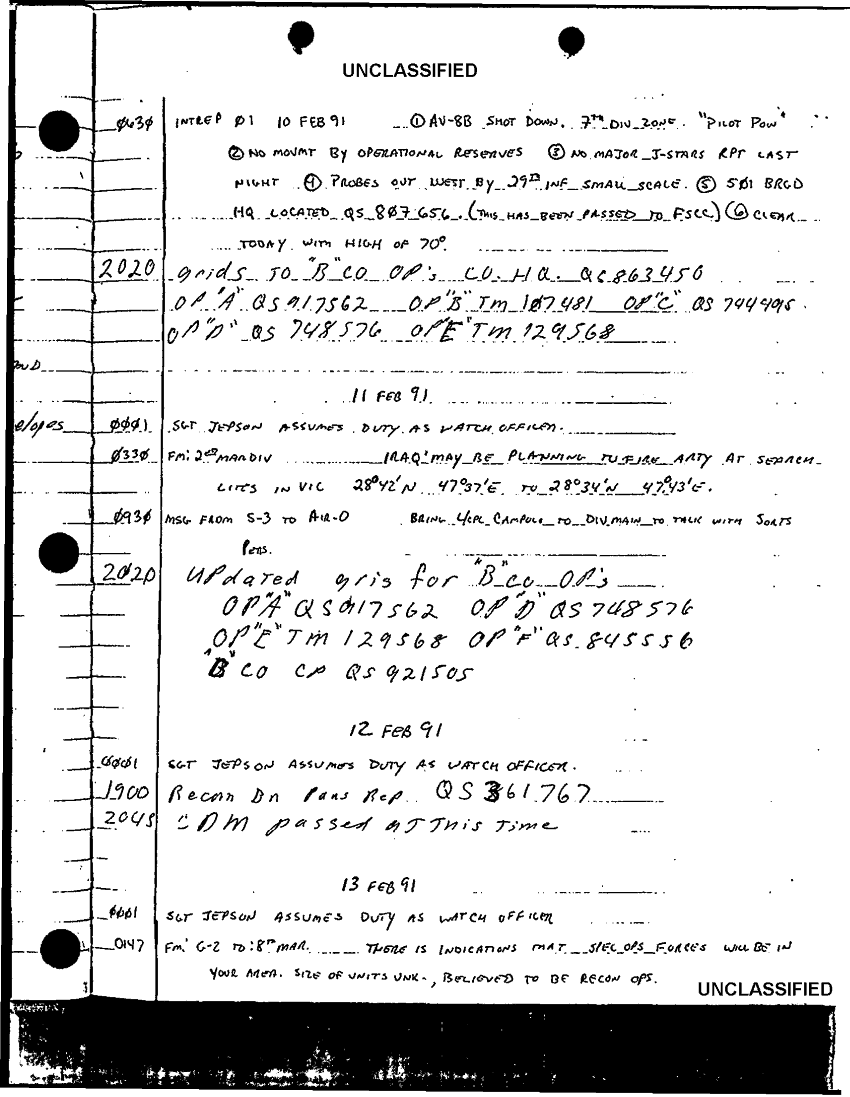 UNCLASSIFIED
0630 INTREP 01 10 FEB 91 ① AV-8B SHOT DOWN. 7TH DIV ZONE. "PILOT POW"
② NO MOVMT BY OPERATIONAL RESERVES ③ NO MAJOR J-STARS RPT LAST
NIGHT ④ PROBES OUT WEST BY 29TH INF SMALL SCALE. ⑤ 501 BRGD
HQ LOCATED QS 807656. (THIS HAS BEEN PASSED TO FSCC) ⑥ CLEAR
TODAY WITH HIGH OF 70°.
2020 grids TO "B" CO OP's CO. HQ. QS 863450
OP "A" QS 917562 OP "B" TM 107481 OP "C" QS 744495
OP "D" QS 748576 OP "E" TM 129568
11 FEB 91
elopes 0001 SGT JEPSON ASSUMES DUTY AS WATCH OFFICER.
0330 FM: 2nd MARDIV IRAQ MAY BE PLANNING TO FIRE ARTY AT SEARCH
LITES IN VIC 28°42'N 47°37'E TO 28°34'N 47°43'E.
0930 MSG FROM S-3 TO AIR-O BRING L/CPL TO DIV MAIN TO TALK WITH SORTS
Pers.
2020 UPdated gris for "B" co OP's
OP "A" QS 917562 OP "D" QS 748576
OP "E" TM 129568 OP "F" QS 845556
"B" CO CP QS 921505
12 FEB 91
0001 SGT JEPSON ASSUMES DUTY AS WATCH OFFICER.
1900 Recon Bn Pans Rep QS 361767
2045 CDM passed at This Time
13 FEB 91
0001 SGT JEPSON ASSUMES DUTY AS WATCH OFFICER
0147 FM: G-2 TO: 8TH MAR. THERE IS INDICATIONS THAT SPEC OPS FORCES WILL BE IN
YOUR AREA. SIZE OF UNITS UNK., BELIEVED TO BE RECON OPS.
UNCLASSIFIED